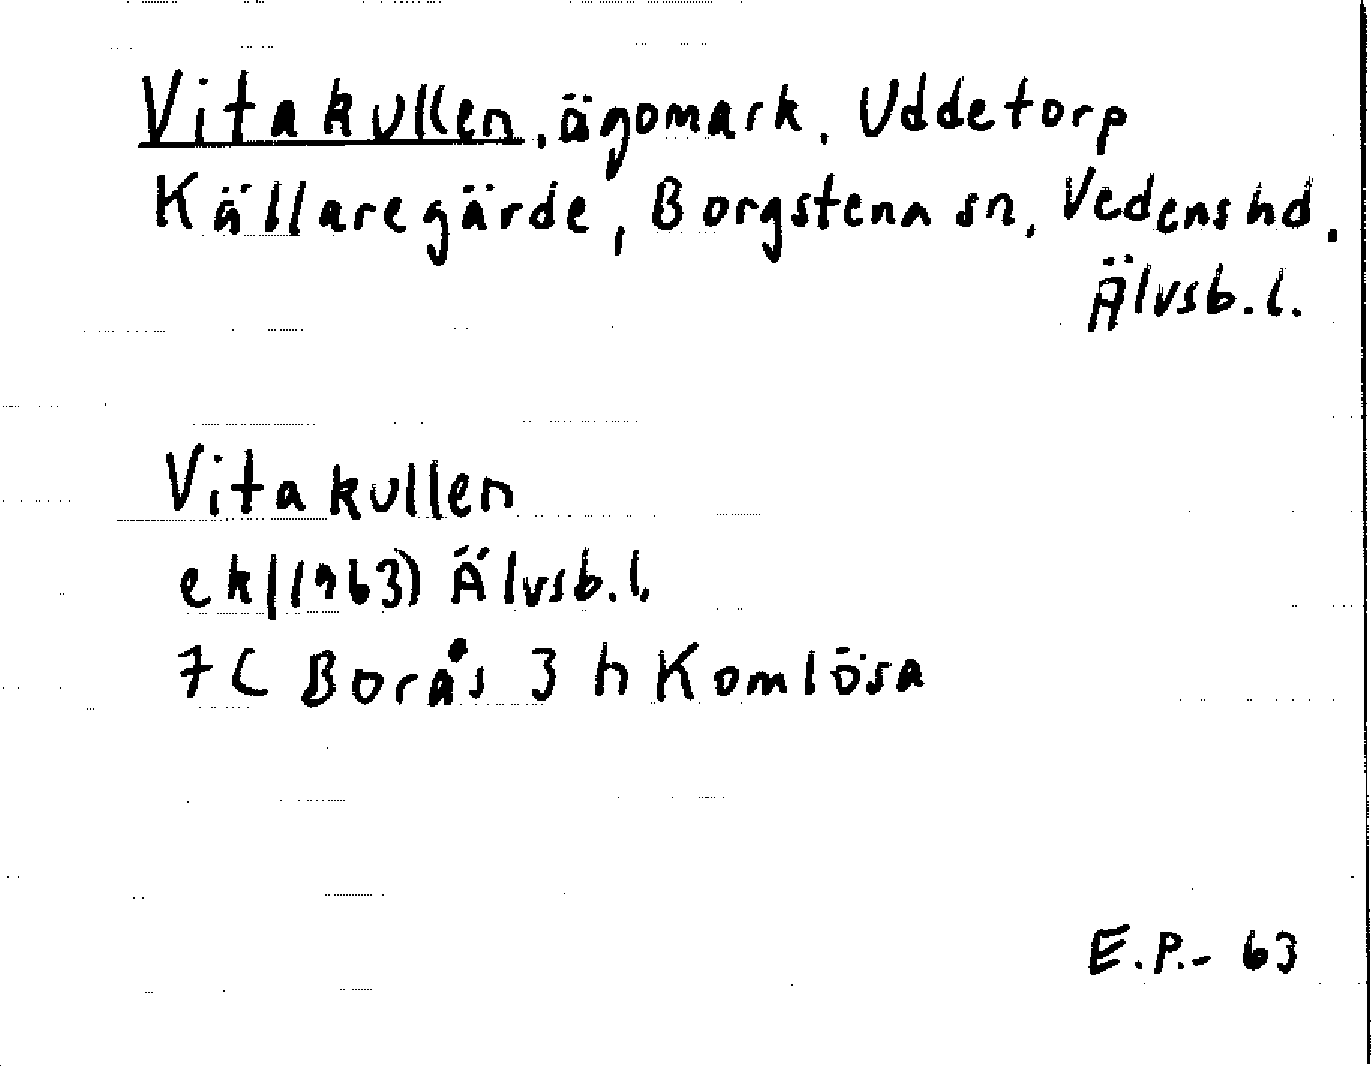 Vitakullen, ägomark, Uddetorp
Källaregärde, Borgstena sn, Vedens hd.
Älvsb.l.
Vitakullen
ek (1963) Älvsb.l.
7C Borås 3 h Komlösa
E.P.- 63